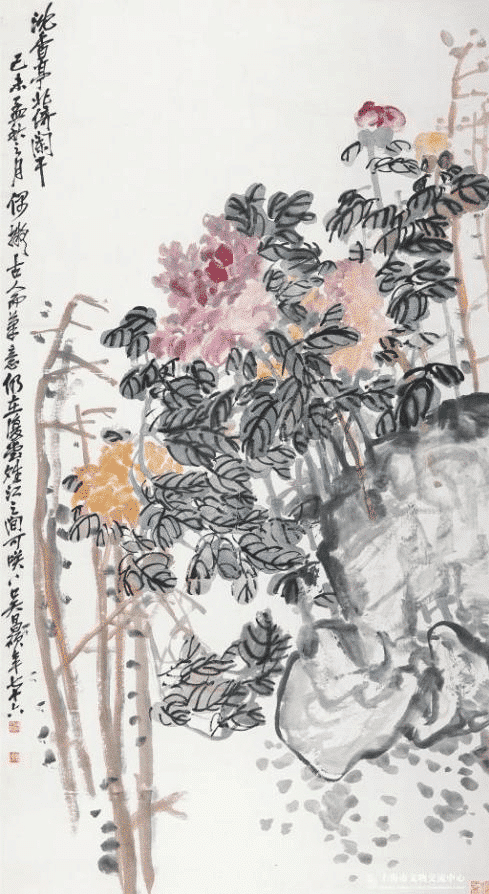 沈香亭北倚闌干
己未孟秋之月偶擬古人而筆意仍在復堂晴江之間可咲〻吳昌碩年七十六
上海市文物交流中心